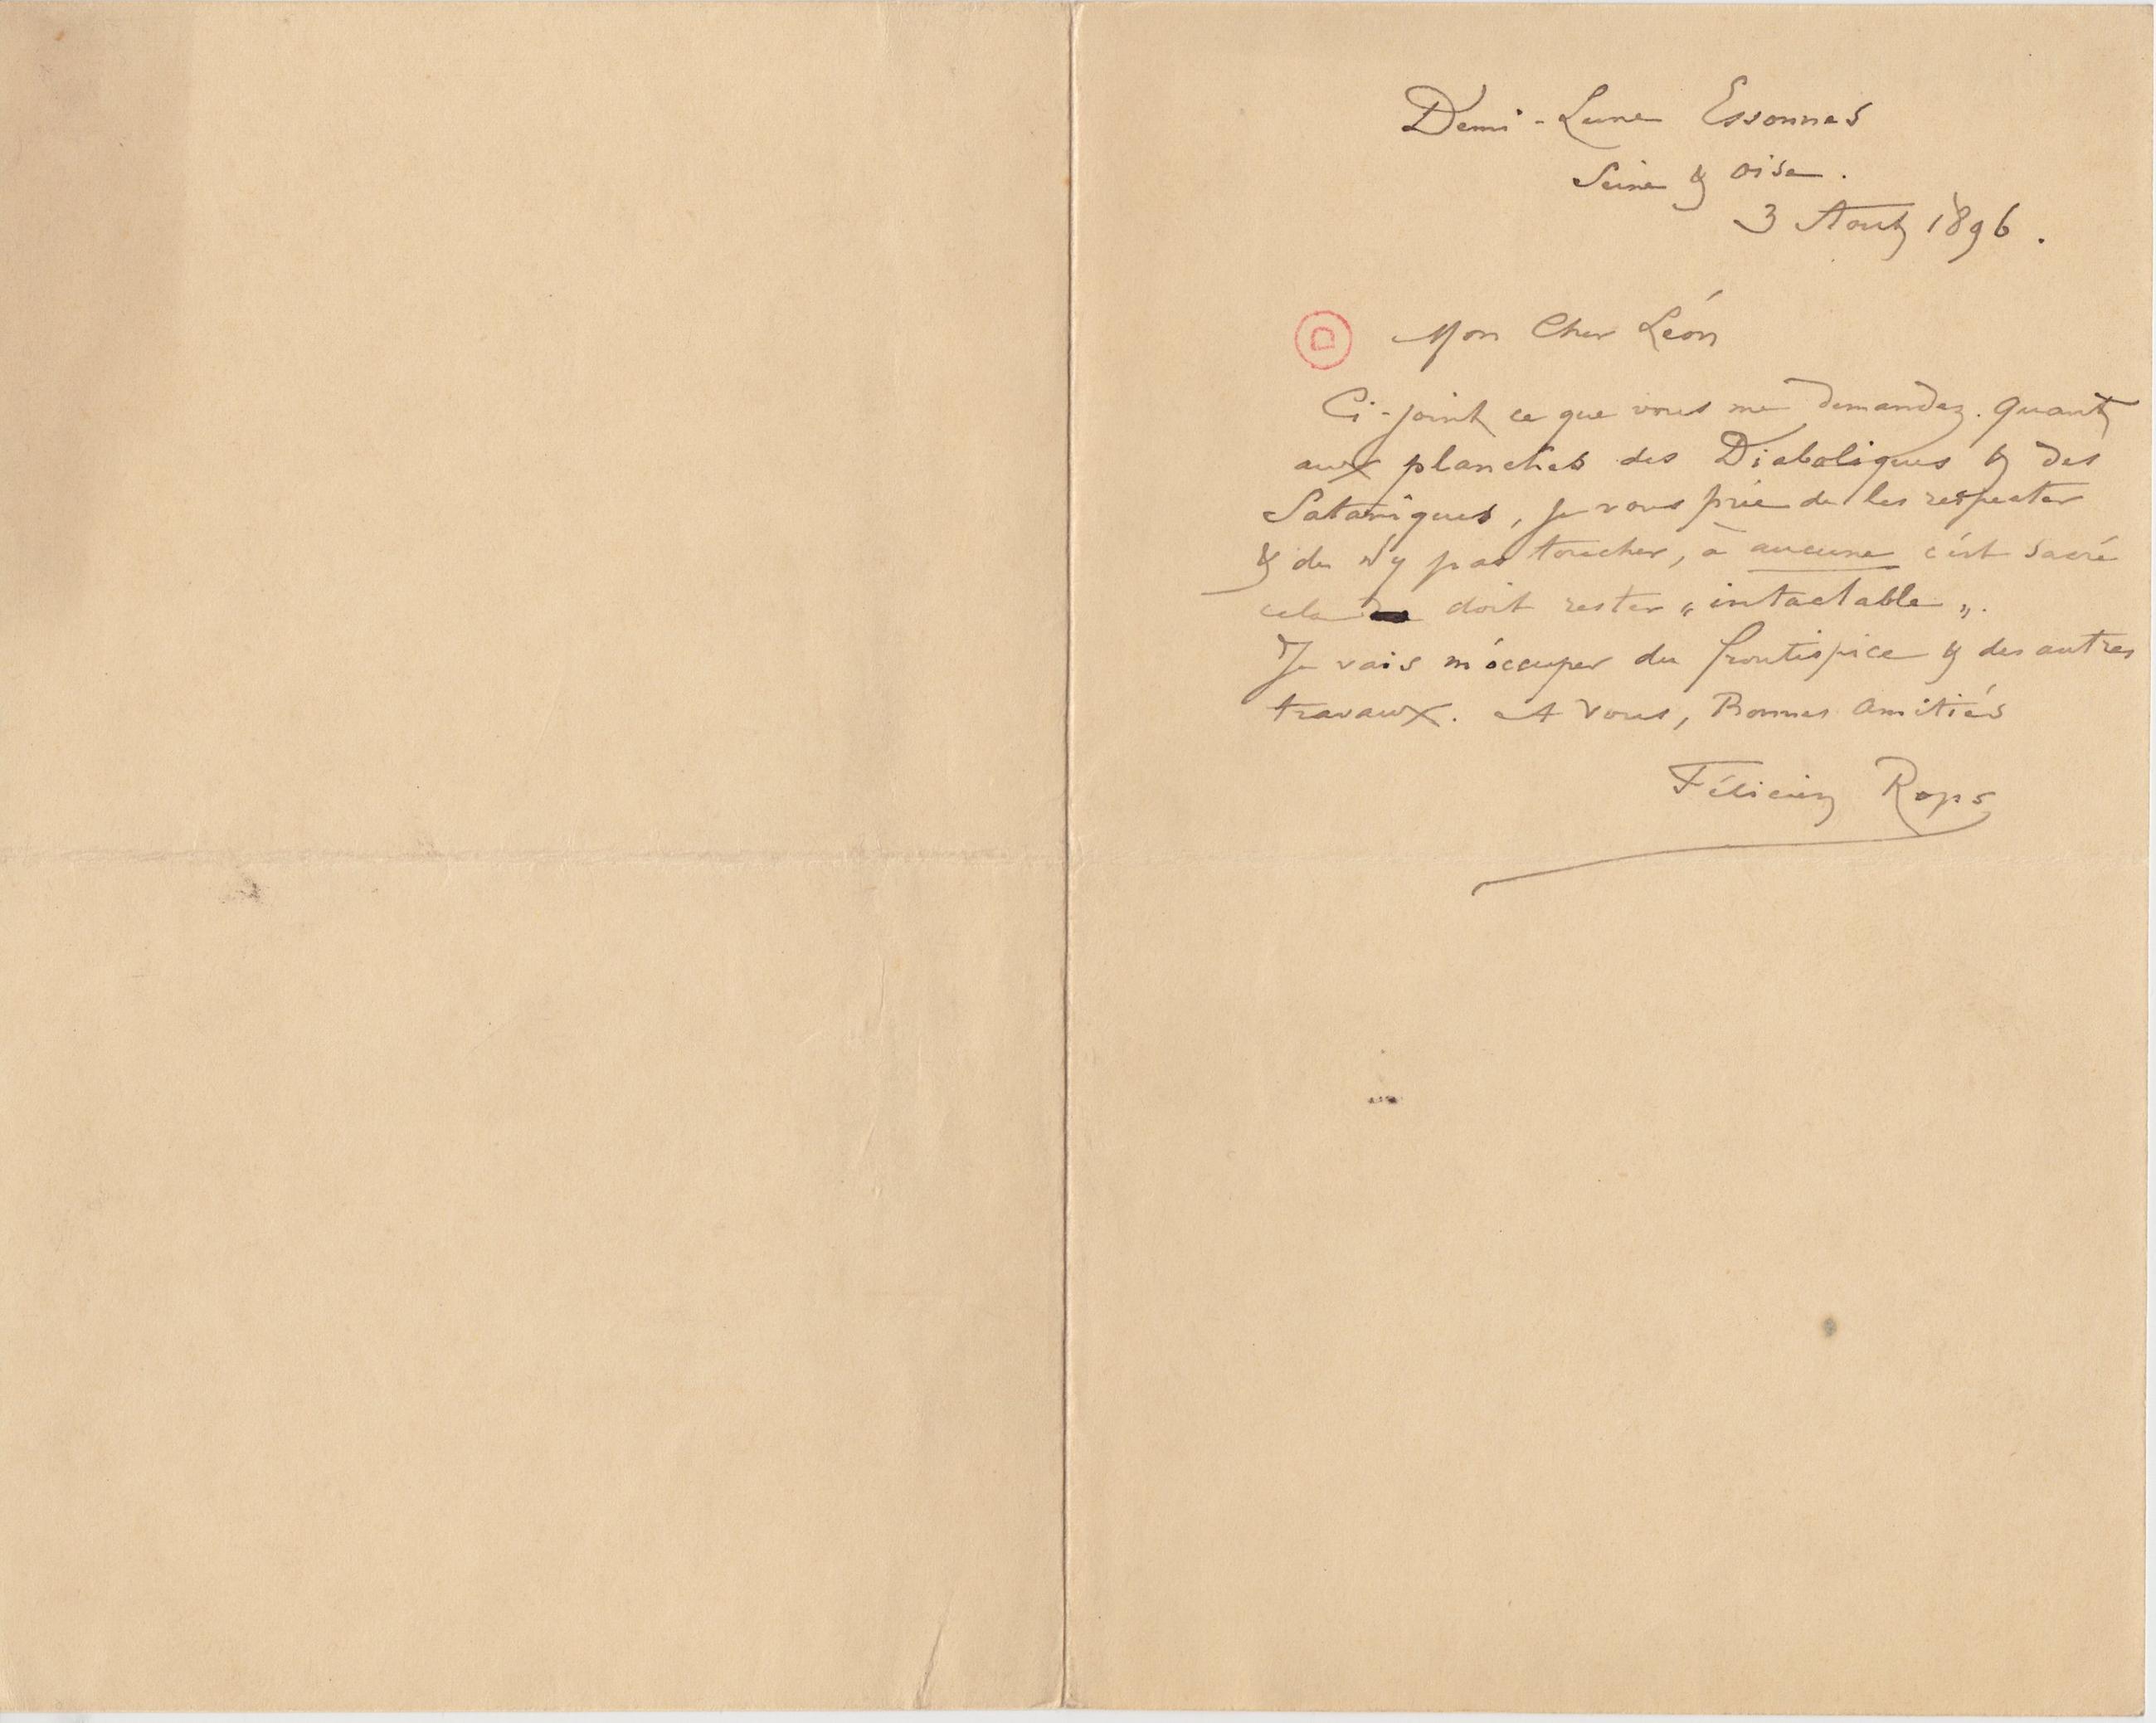 Demi-Lune Essonnes
Seine & Oise.
3 Aout 1896.
D
Mon Cher Léon
Ci-joint ce que vous me demandez. Quant
aux planches des Diaboliques & des
Sataniques, je vous prie de les respecter
& de n'y pas toucher, à aucune c'est sacré
cela doit rester „intactable„.
Je vais m'occuper du frontispice & des autres
travaux. A Vous, Bonnes Amitiés
Félicien Rops